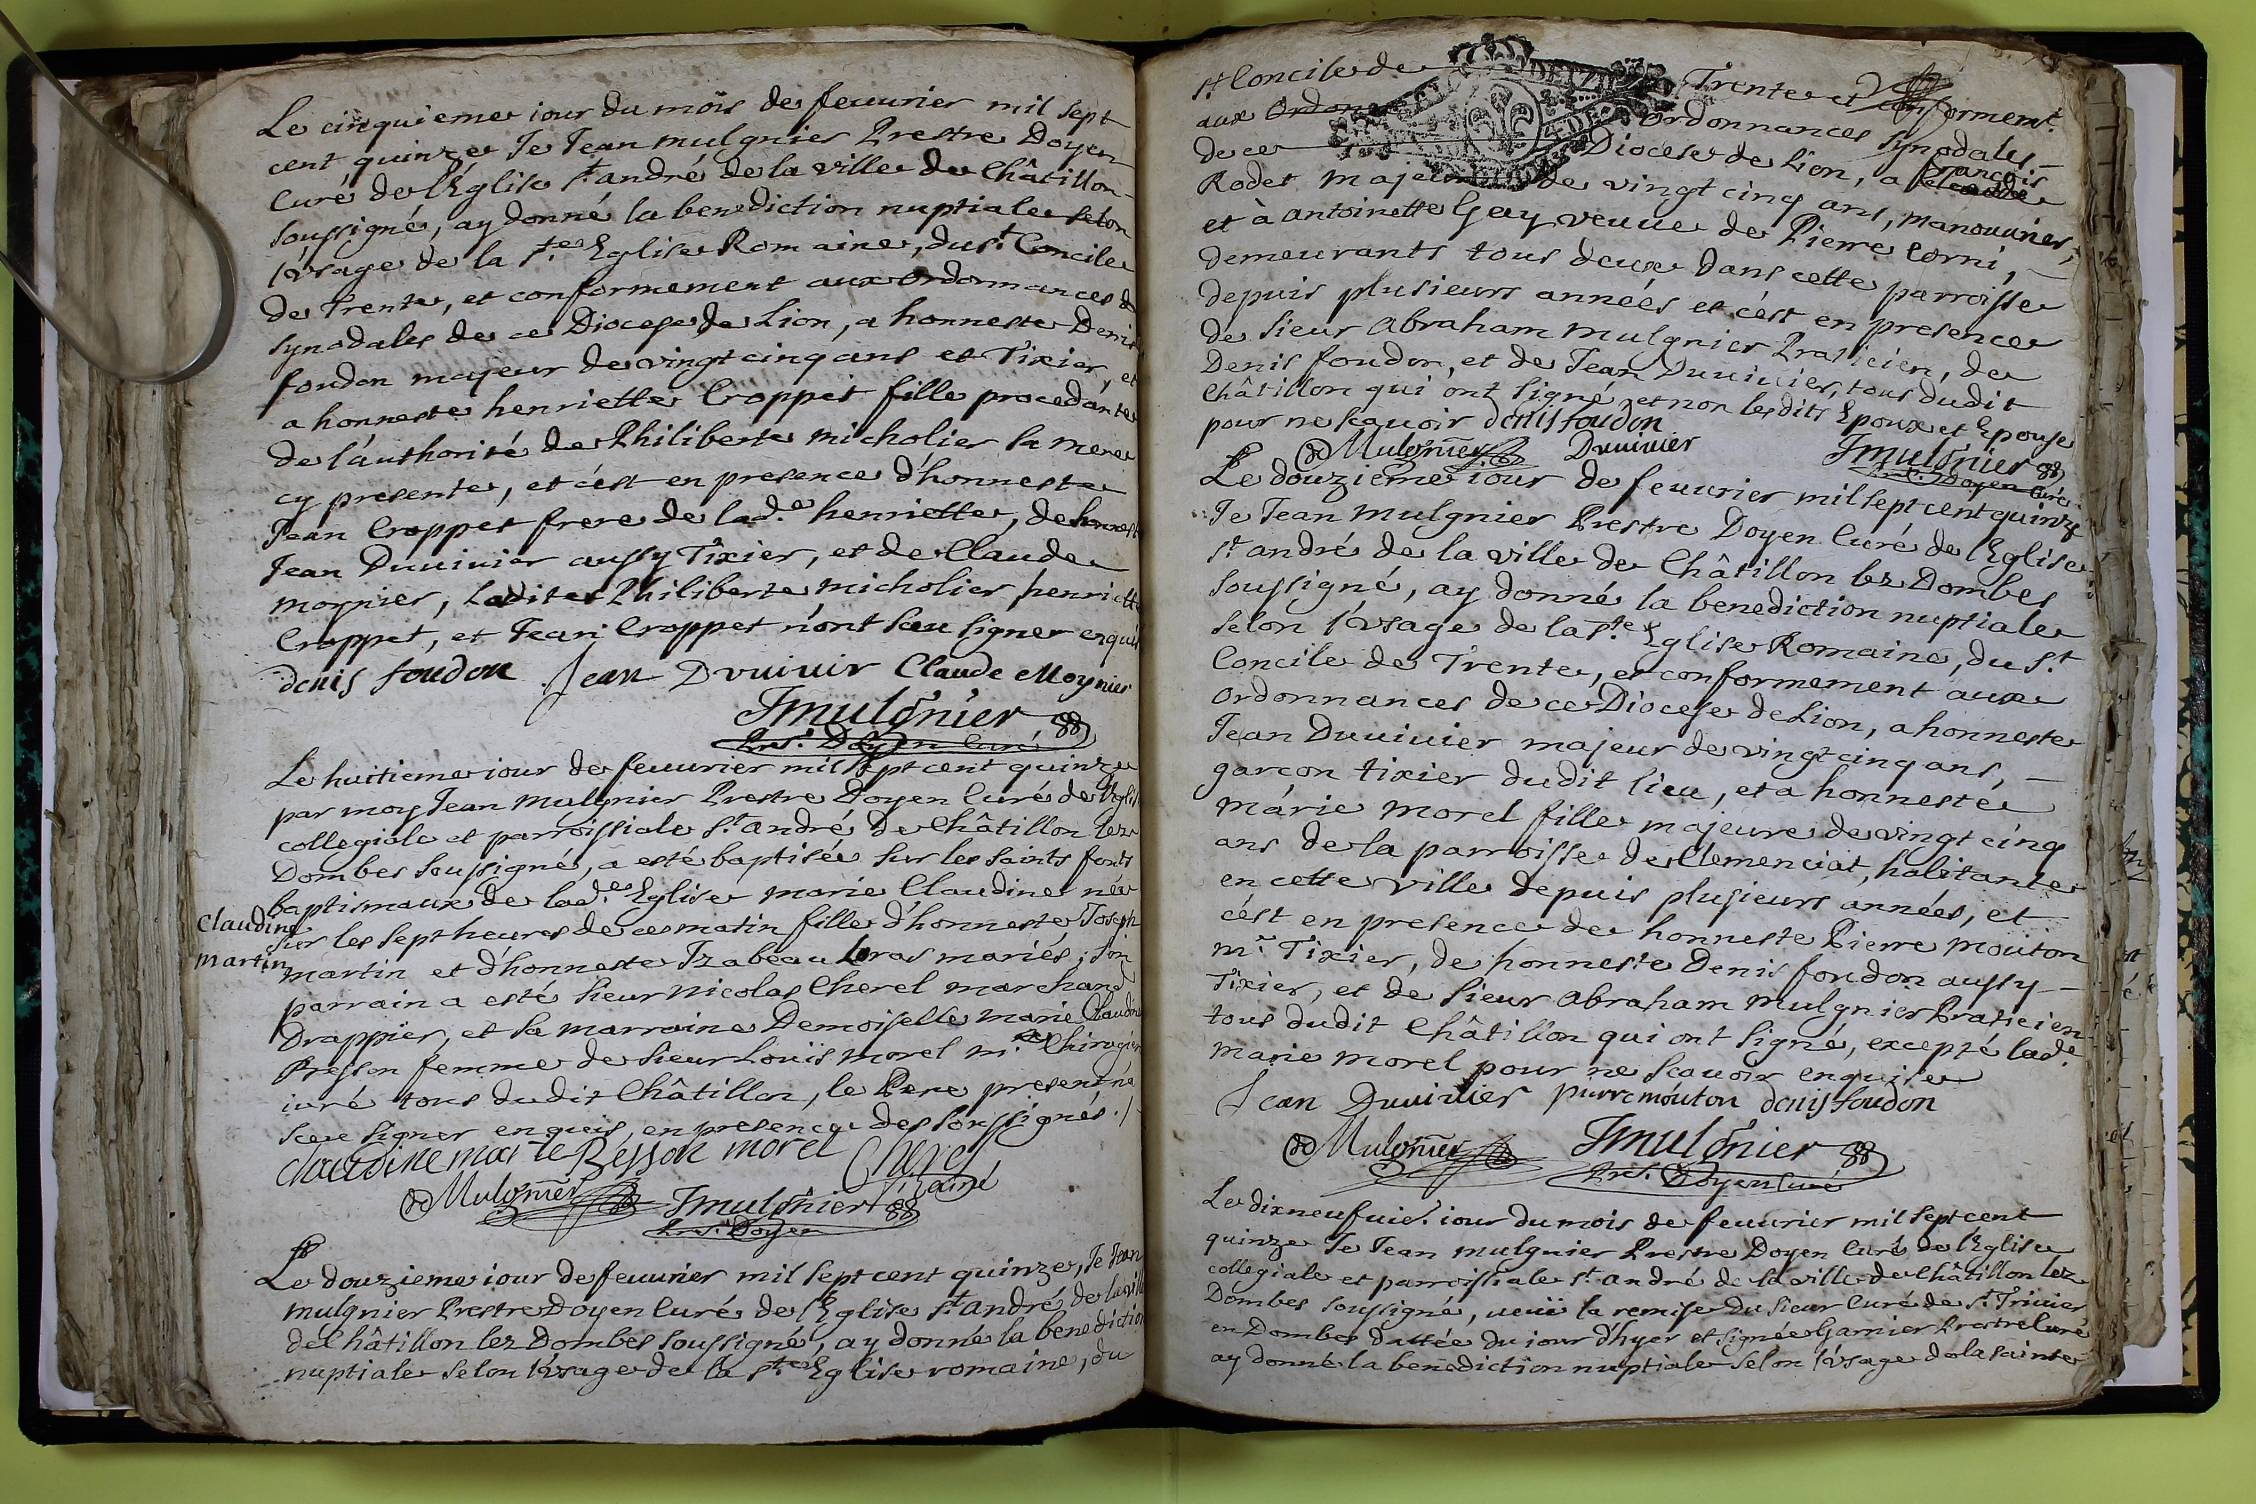 Le cinquieme iour du mois de feuurier mil sept
cent quinze Je Jean mulgnier Prestre Doyen
Curé de l'Eglise st andré de la ville de Châtillon
soussigné, ay donné la benediction nuptiale selon
l'Vsage de la ste Eglise Romaine, du st Concile
de Trente, et conformement aux ordonnances
synodales de ce Diocese de Lion, a honneste Denis
foudon majeur de vingt cinq ans et Tixier, et
a honneste henriette Croppet fille procedante
de l'authorité de Philiberte micholier sa mere
cy presente, et c'est en presence d'honneste
Jean Croppet frere de lad.e henriette, de honneste
Jean Duuiuier aussy Tixier, et de Claude
moynier, Ladite Philiberte micholier henriette
Croppet, et Jean Croppet n'ont sceu signer enquis
denis foudon Jean Dvuiuir Claude Moynier
JMulgnier
Pres. Doyen Curé
Le huitieme iour de feuurier mil sept cent quinze
par moy Jean mulgnier Prestre Doyen Curé de l'Eglise
collegiale et parroissiale st andré de Châtillon lez
Dombes soussigné, a esté baptisée sur les saints fonts
baptismaux de lad.e Eglise marie Claudine née
Claudine
martin
sur les sept heures de ce matin fille d'honneste Joseph
martin et d'honneste Izabeau Loras mariés, son
parrain a esté sieur nicolas Cherel marchand
Drappier, et sa marraine Demoiselle marie Claudine
Besson femme de sieur Louïs morel m.e Chirugien
iuré tous dudit Châtillon, le Pere present n'a
sceu signer enquis, en presence des soussignés
claudine marie Besson morel Cherel
l'ainé
Mulgnier JMulgnier
Pres. Doyen
Le douzieme iour de feuurier mil sept cent quinze, Je Jean
mulgnier Prestre Doyen Curé de l'Eglise st andré de la ville
de Châtillon lez Dombes soussigné, ay donné la benediction
nuptiale selon l'Vsage de la ste Eglise romaine, du
st Concile de Trente et conformem.t
aux ordonnances synodales
de ce Diocese de Lion, a françois
Rodet majeur de vingt cinq ans, manouurier,
et à antoinette Gay veuue de Pierre Corni,
demeurants tous deux dans cette parroisse
depuis plusieurs années et c'est en presence
de sieur Abraham mulgnier Praticien, de
Denis foudon, et de Jean Duuiuier, tous dudit
Châtillon qui ont signé et non lesdits Epoux et Epouse
pour ne scauoir denis foudon
Mulgnier Duuiuier JMulgnier
Pres. Doyen Curé
Le douzieme iour de feuurier mil sept cent quinze
Je Jean mulgnier Prestre Doyen Curé de l'Eglise
st andré de la ville de Châtillon lez Dombes
soussigné, ay donné la benediction nuptiale
selon l'Vsage de la ste Eglise Romaine, du st
Concile de Trente, et conformement aux
ordonnances de ce Diocese de Lion, a honneste
Jean Duuiuier majeur de vingt cinq ans,
garcon tixier dudit lieu, et a honneste
marie morel fille majeure de vingt cinq
ans de la parroisse de Clemenciat, habitante
en cette ville depuis plusieurs années, et
c'est en presence de honneste Pierre mouton
m.e Tixier, de honneste Denis foudon aussy
Tixier, et de sieur Abraham mulgnier Praticien
tous dudit Châtillon qui ont signé, excepté lad.e
marie morel pour ne scauoir enquise
Jean Duuiuier pierre mouton denis foudon
Mulgnier JMulgnier
Pres. Doyen Curé
Le dixneufuie. iour du mois de feuurier mil sept cent
quinze Je Jean mulgnier Prestre Doyen Curé de l'Eglise
collegiale et parroissiale st andré de la ville de Châtillon lez
Dombes soussigné, veuë la remise du sieur Curé de st Triuier
en Dombes dattée du iour d'hyer et signée Garnier Prestre Curé
ay donné la benediction nuptiale selon l'Vsage de la sainte